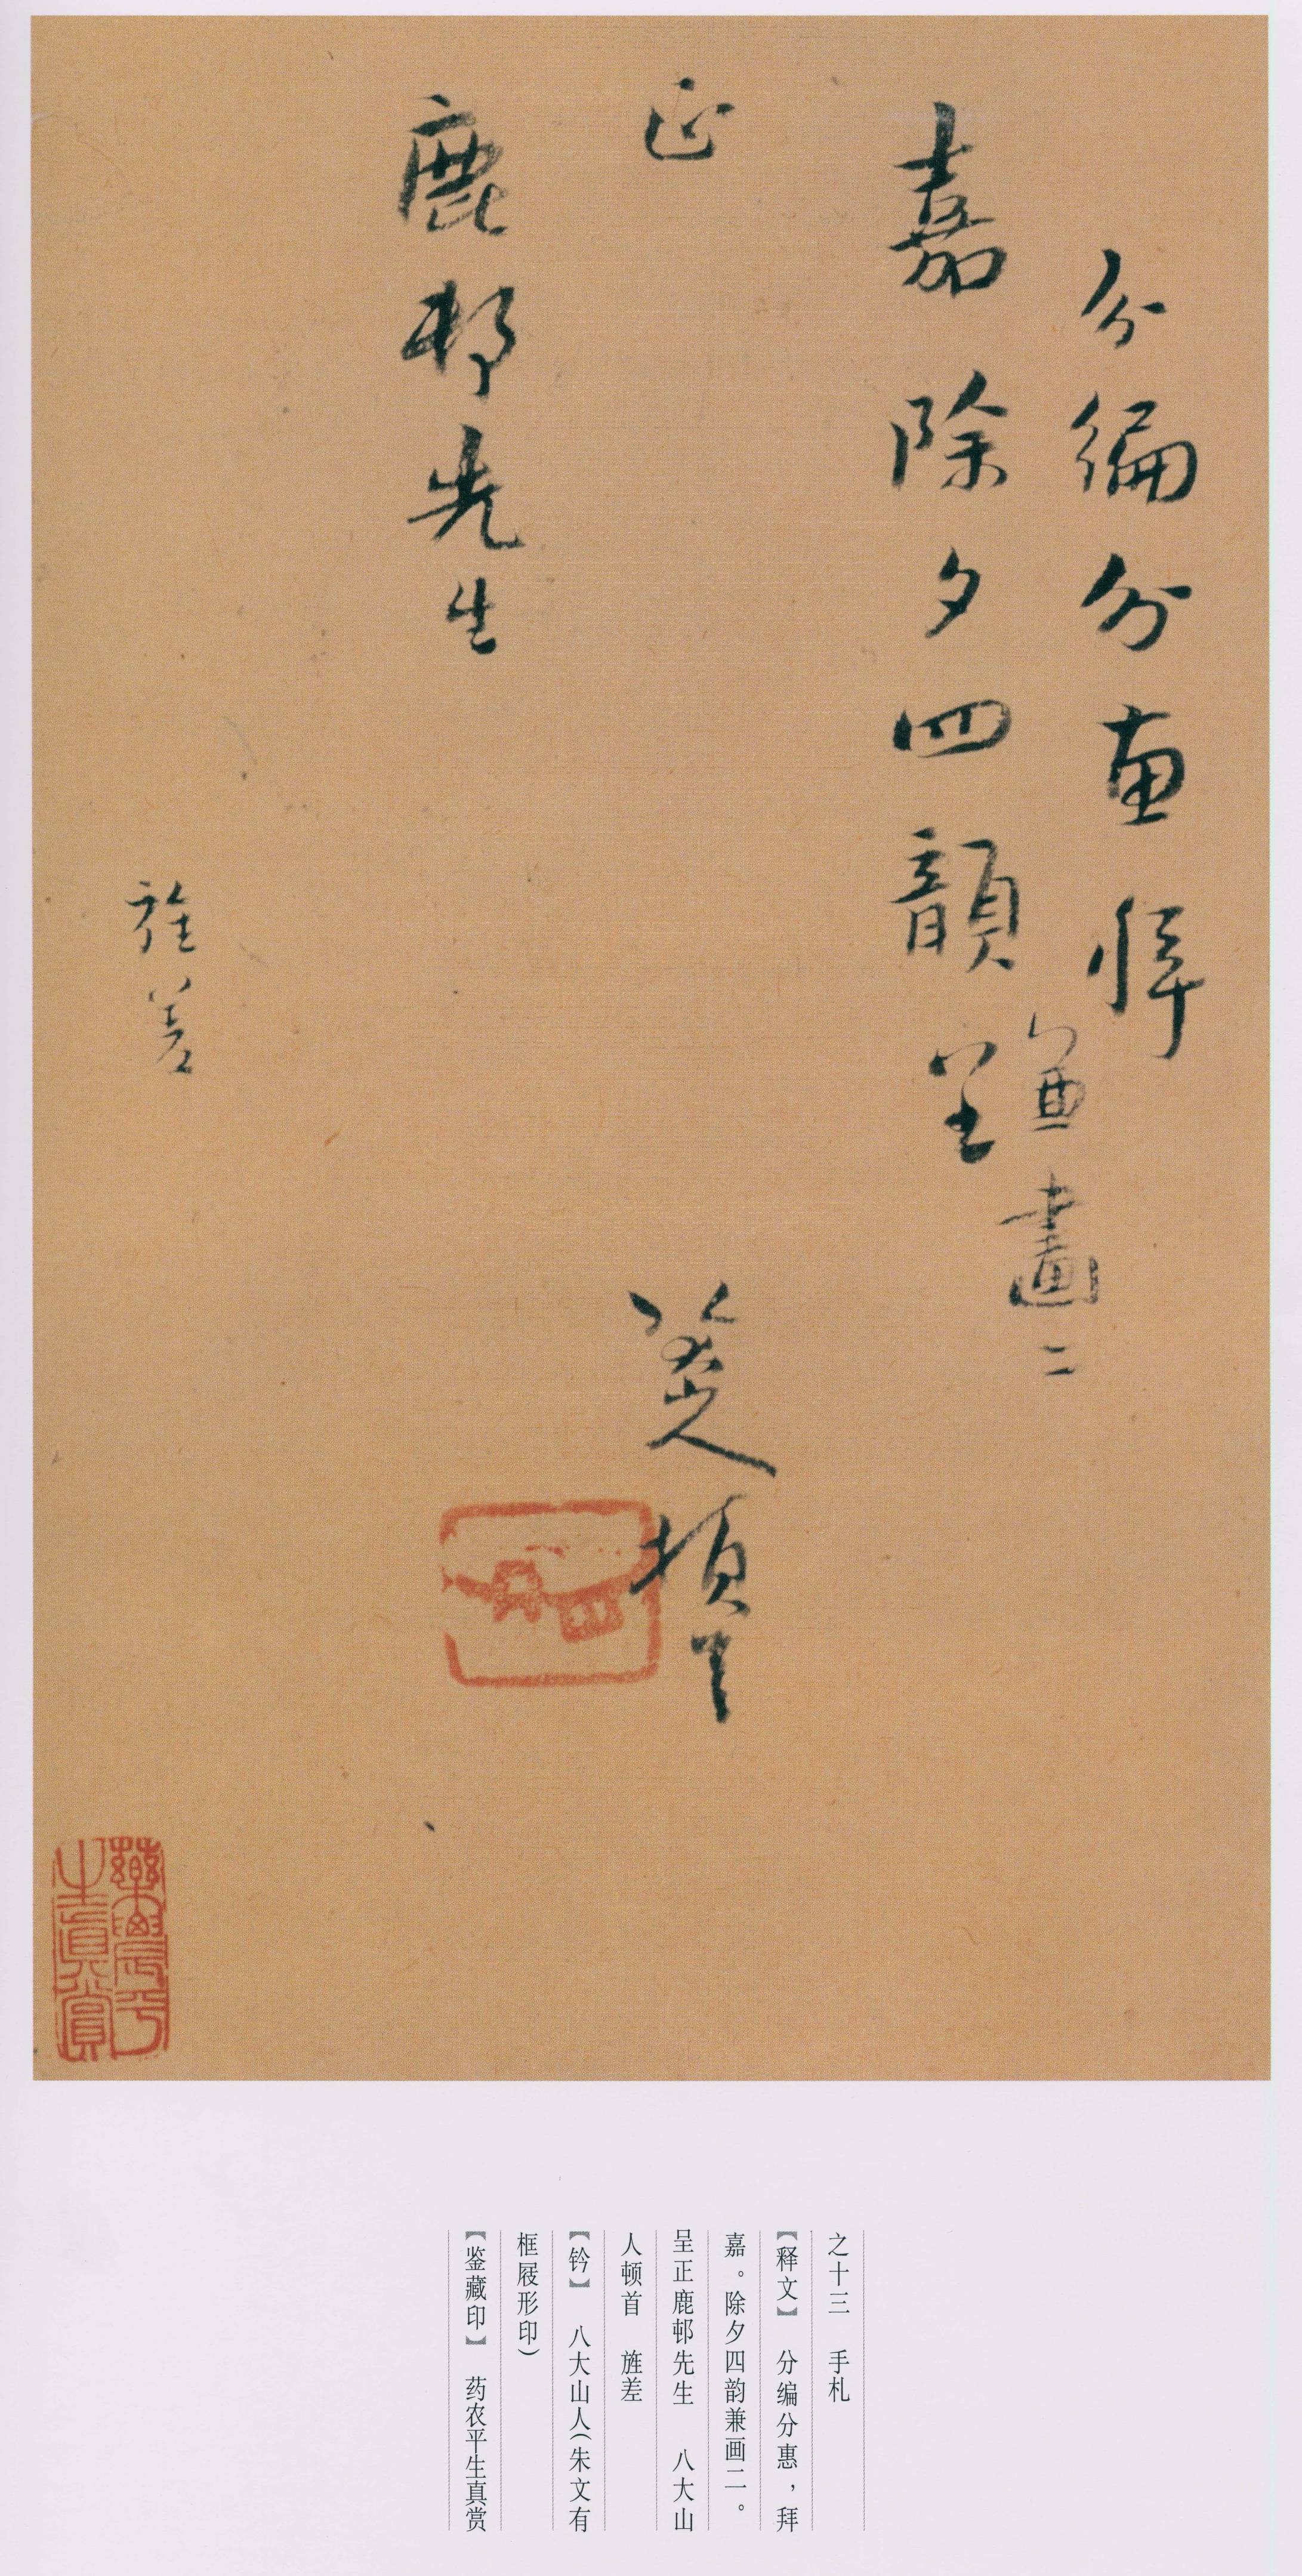 分编分惠拜
兼畫二
嘉除夕四韻呈
正
八大山人頓首
鹿邨先生
旌差
藥農平
生真賞
之十三 手札
【释文】 分编分惠，拜
嘉。除夕四韵兼画二。
呈正鹿邨先生 八大山
人顿首 旌差
【钤】 八大山人（朱文有
框屐形印）
【鉴藏印】 药农平生真赏